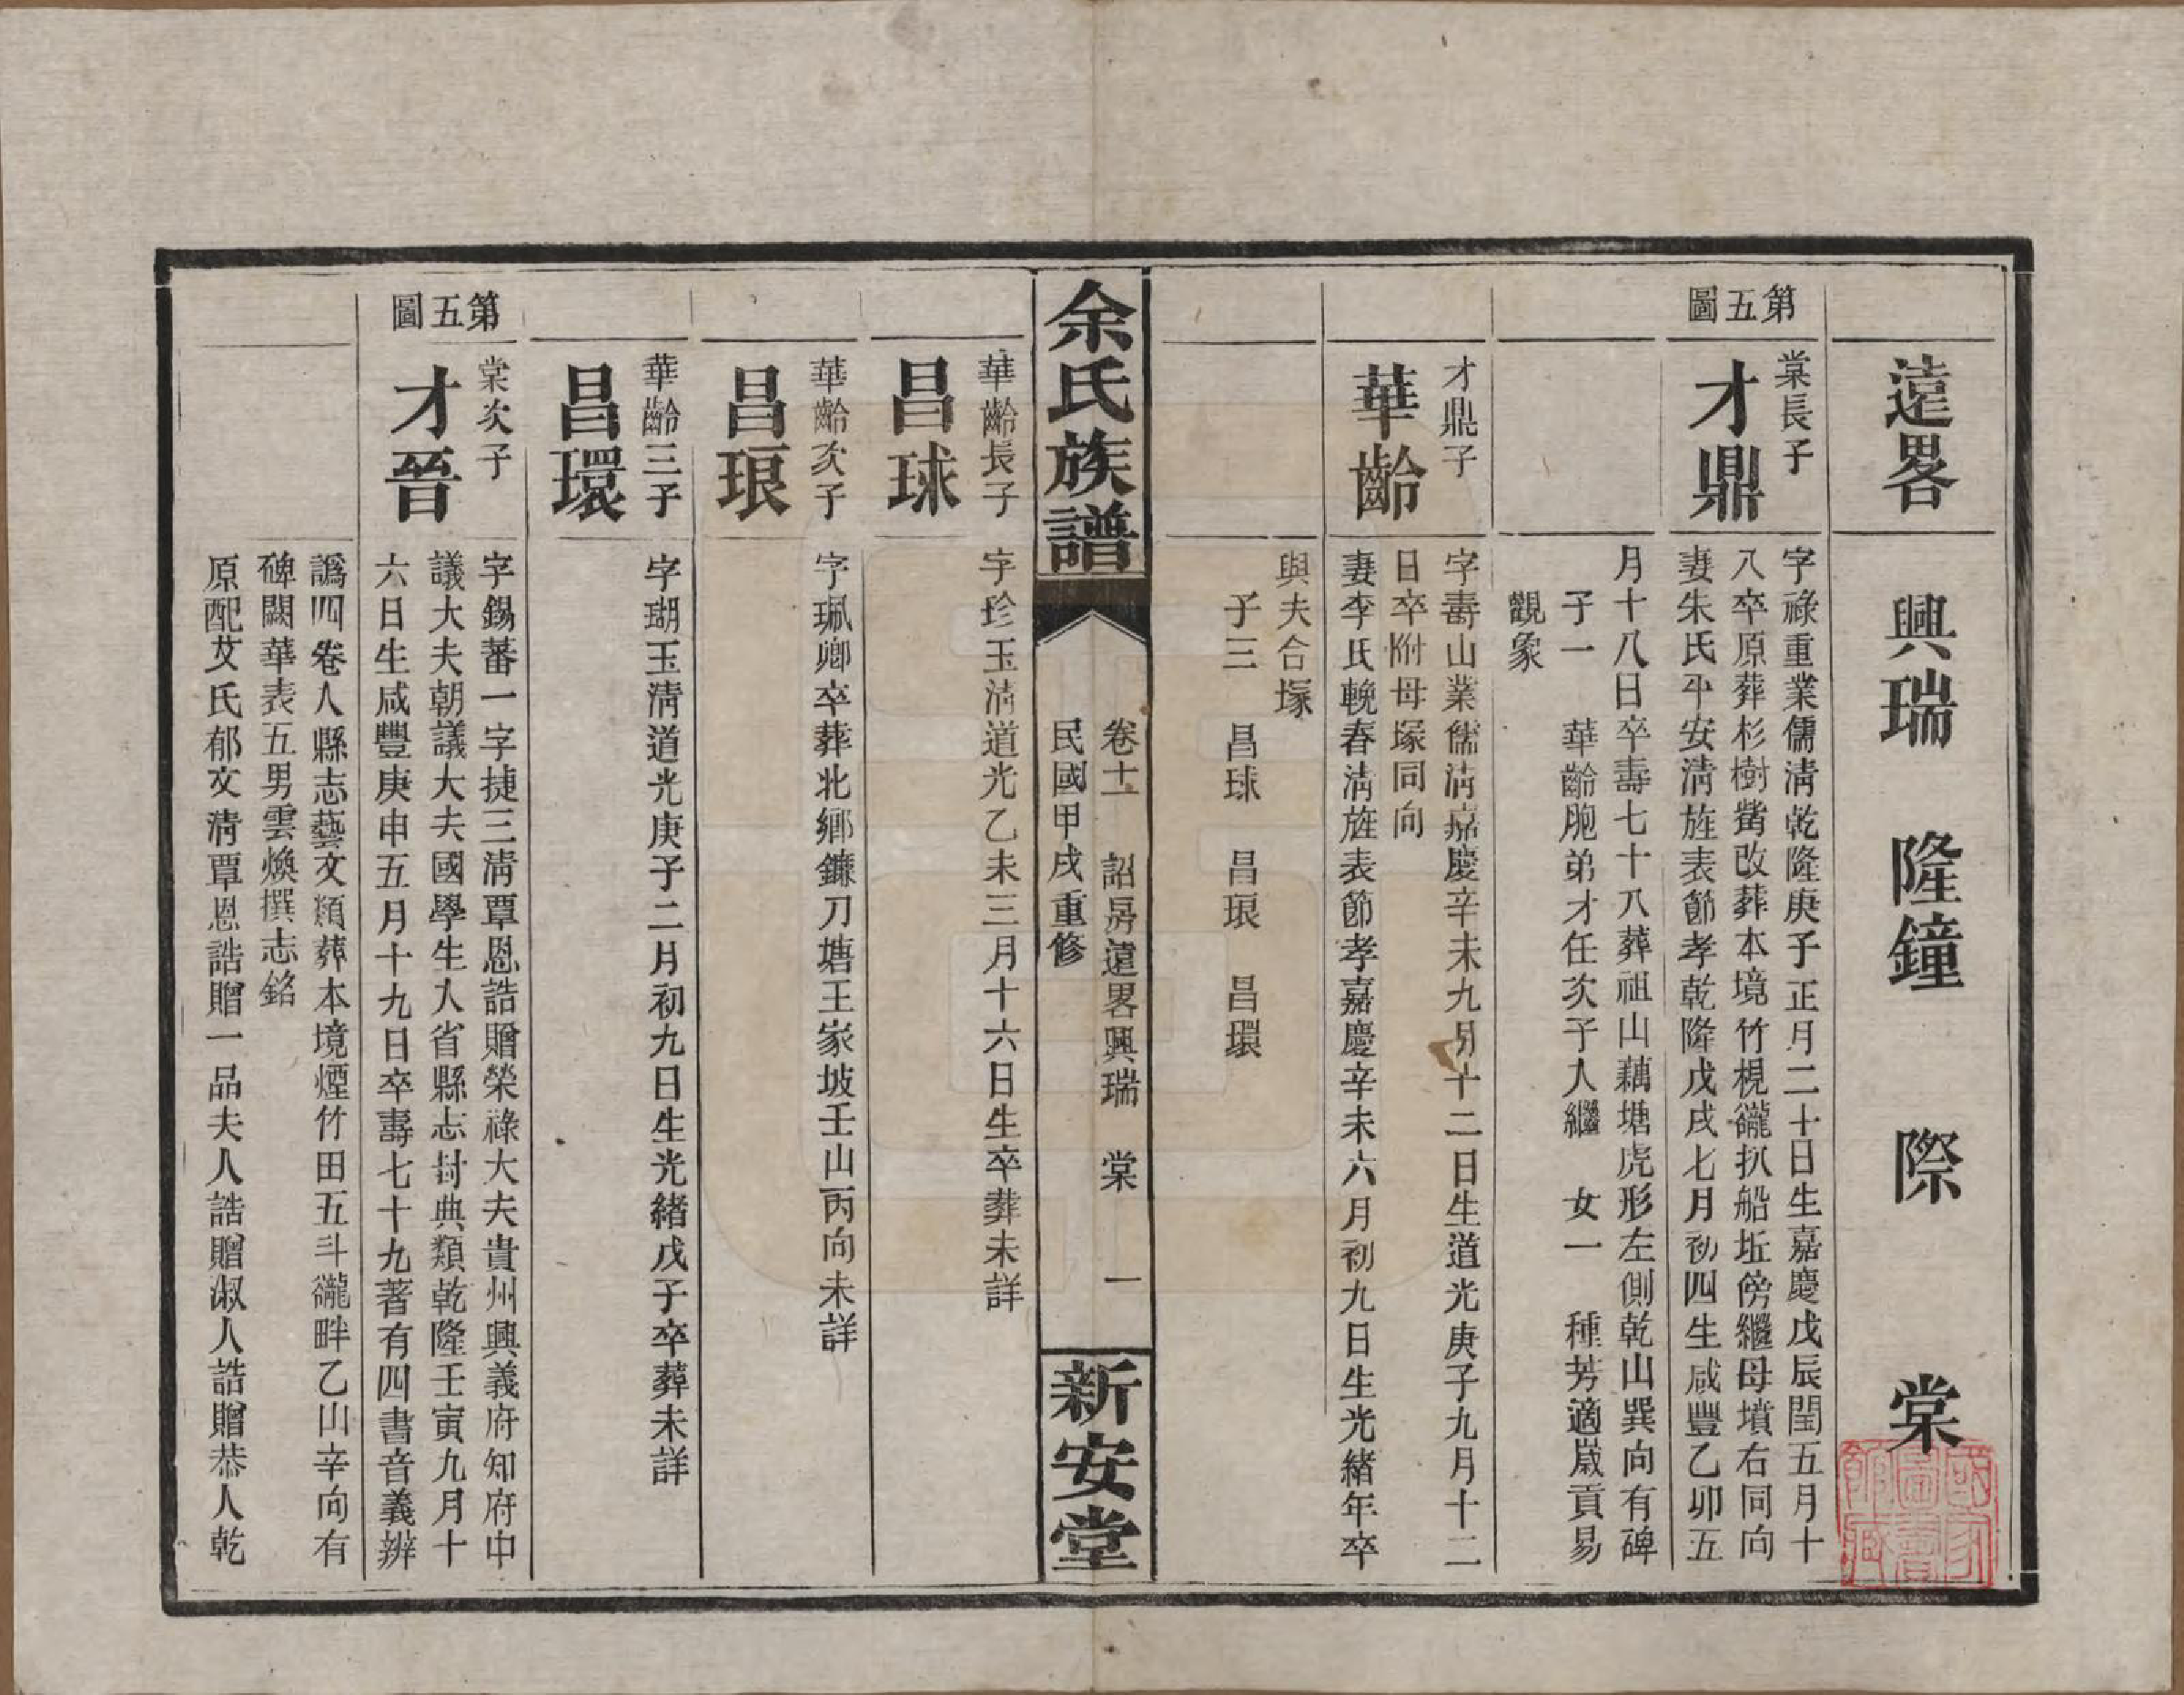 遠畧　興瑞　隆鐘　際　棠
第五圖
棠長子
才鼎
字祿重業儒淸乾隆庚子正月二十日生嘉慶戊辰閏五月十
八卒原葬杉樹觜改葬本境竹梘巃扒船坵傍繼母墳右同向
妻朱氏平安淸旌表節孝乾隆戊戌七月初四生咸豐乙卯五
月十八日卒壽七十八葬祖山藕塘虎形左側乾山巽向有碑
子一　華齡胞弟才任次子入繼　女一　種芳適嵗貢易
觀象
才鼎子
華齡
字壽山業儒淸嘉慶辛未九月十二日生道光庚子九月十二
日卒附母塚同向
妻李氏輓春淸旌表節孝嘉慶辛未六月初九日生光緒年卒
與夫合塚
子三　昌球　昌琅　昌環
余氏族譜
卷十一　詔房遠畧興瑞　棠　一
民國甲戌重修
新安堂
華齡長子
昌球
字珍玉淸道光乙未三月十六日生卒葬未詳
華齡次子
昌琅
字珮卿卒葬北鄉鐮刀塘王家坡壬山丙向未詳
華齡三子
昌環
字瑚玉淸道光庚子二月初九日生光緒戊子卒葬未詳
第五圖
棠次子
才晉
字錫蕃一字捷三淸覃恩誥贈榮祿大夫貴州興義府知府中
議大夫朝議大夫國學生入省縣志封典類乾隆壬寅九月十
六日生咸豐庚申五月十九日卒壽七十九著有四書音義辨
譌四卷入縣志藝文類葬本境煙竹田五斗巃畔乙山辛向有
碑闕華表五男雲煥撰志銘
原配艾氏郁文淸覃恩誥贈一品夫人誥贈淑人誥贈恭人乾